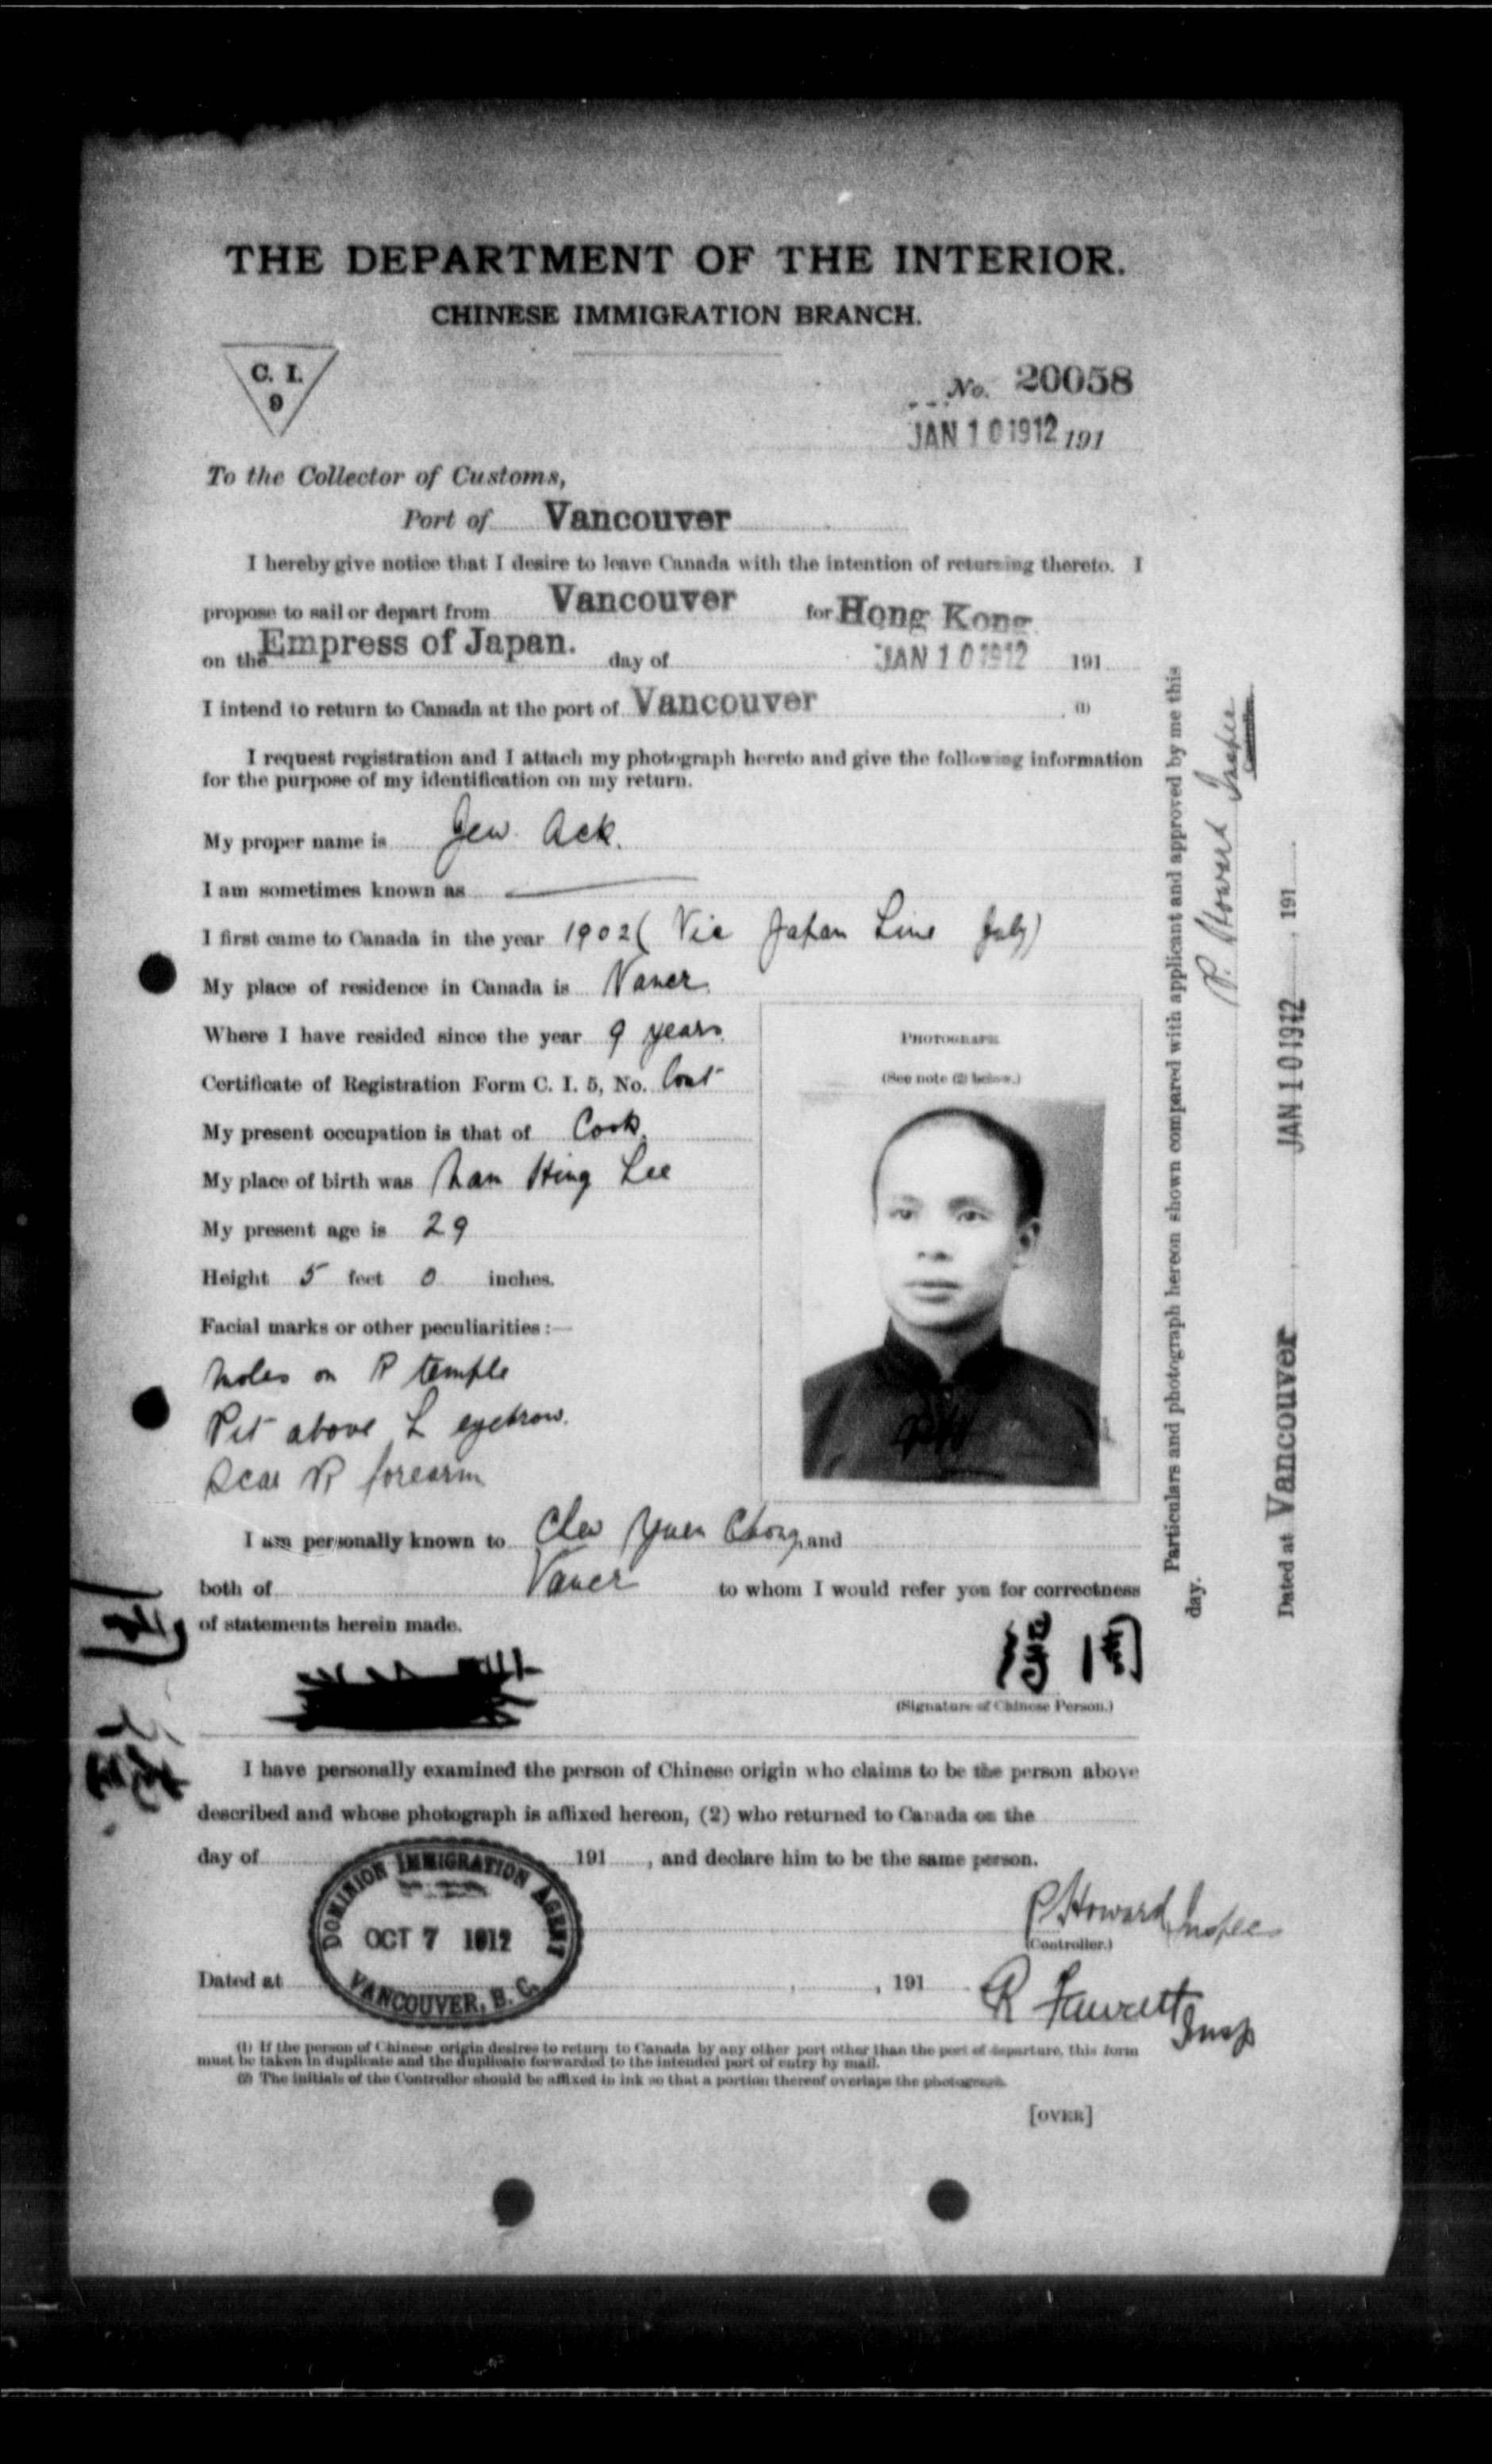 THE DEPARTMENT OF THE INTERIOR.
CHINESE IMMIGRATION BRANCH.
C. I.
9
No. 20058
JAN 10 1912 191
To the Collector of Customs,
Port of Vancouver
I hereby give notice that I desire to leave Canada with the intention of returning thereto. I
propose to sail or depart from Vancouver for Hong Kong
on the Empress of Japan. day of JAN 10 1912 191
I intend to return to Canada at the port of Vancouver (1)
I request registration and I attach my photograph hereto and give the following information
for the purpose of my identification on my return.
My proper name is Jew Ack.
I am sometimes known as
I first came to Canada in the year 1902 ( Vic Japan Line July)
My place of residence in Canada is Vancr
Where I have resided since the year 9 years
Certificate of Registration Form C. I. 5, No.
My present occupation is that of Cook
My place of birth was Nam Hing Lee
My present age is 29
Height 5 feet 0 inches.
Facial marks or other peculiarities :—
Moles on R temple
Pit above L eyebrow.
Scar R forearm
PHOTOGRAPH
(See note (2) below.)
PH
I am personally known to Chew Yuen Chong and
both of Vancr to whom I would refer you for correctness
of statements herein made.
(Signature of Chinese Person.)
I have personally examined the person of Chinese origin who claims to be the person above
described and whose photograph is affixed hereon, (2) who returned to Canada on the
day of 191 , and declare him to be the same person.
DOMINION IMMIGRATION AGENT
OCT 7 1912
VANCOUVER, B. C.
P. Howard Inspec
(Controller.)
Dated at , 191
R Fawcett
Insp
(1) If the person of Chinese origin desires to return to Canada by any other port other than the port of departure, this form
must be taken in duplicate and the duplicate forwarded to the intended port of entry by mail.
(2) The initials of the Controller should be affixed in ink so that a portion thereof overlaps the photograph.
[OVER]
Particulars and photograph hereon shown compared with applicant and approved by me this
day.
P. Howard Inspec
Controller
Dated at Vancouver JAN 10 1912 , 191